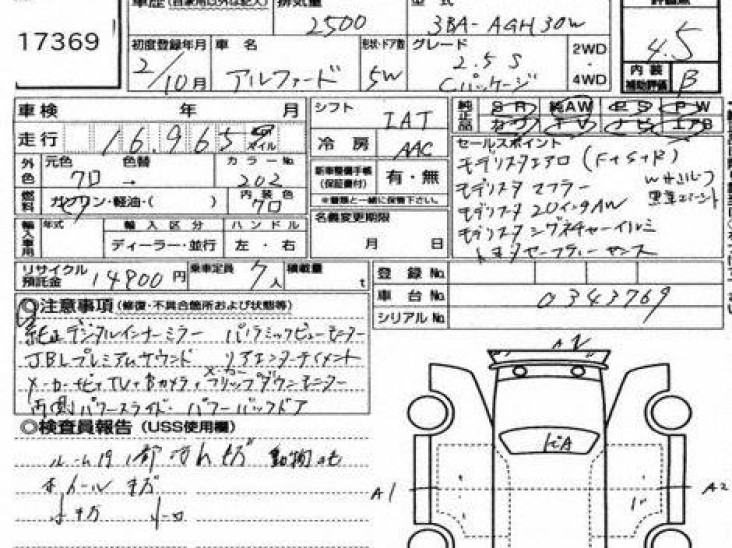 車歴(自家用以外は記入) 排気量 型式 評価点
17369 2500 3BA-AGH30W 4.5
初度登録年月 車名 形状・ドア数 グレード 2WD・4WD 内装補助評価
2/10月 アルファード 5W 2.5 S Cパッケージ B
車検 年 月 シフト IAT 純正品 SR 純AW PS PW
走行 16,965 マイル 冷房 AAC カワ TV ナビ エアB
外色 元色 色替 カラーNo. 新車整備手帳(保証書付) 有・無 セールスポイント
クロ → 202 ※書類と一緒に保管下さい。 モデリスタエアロ(F+S+R)
燃料 ガソリン・軽油・( ) 内装色 クロ 名義変更期限 モデリスタマフラー
輸入車用 年式 輸入区分 ハンドル 月 日 モデリスタ20インチAW
ディーラー・並行 左・右 モデリスタシグネチャーイルミ
トヨタセーフティーセンス
リサイクル預託金 14900円 乗車定員 7人 積載量 t 登録No.
車台No. 0343769
シリアルNo.
◎注意事項(修復・不具合箇所および状態等)
純正デジタルインナーミラー パノラミックビューモニター
JBLプレミアムサウンド リアエンターテイメント
メーカーナビ+TV+Bカメラ+メーカーフリップダウンモニター
両側パワースライド・パワーバックドア
◎検査員報告(USS使用欄)
ルーム内1部
ホイールキズ
小キズ
A1 A2